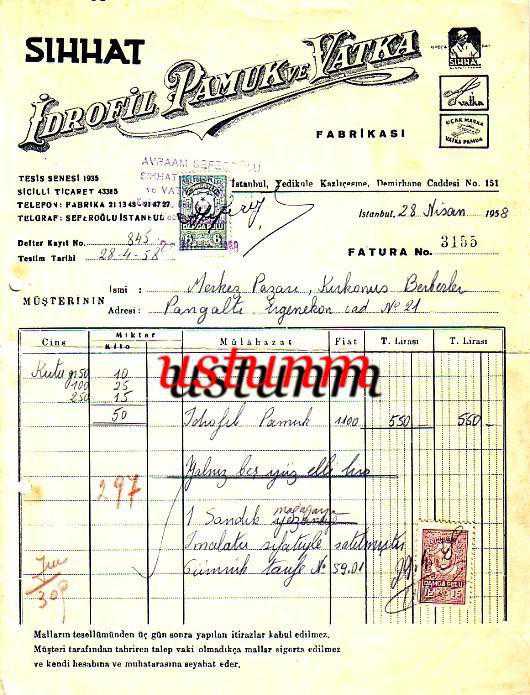 SIHHAT
İDROFİL PAMUK VE VATKA
FABRİKASI
SIHHAT
vatka
UÇAK MARKA
VATKA PAMUK
TESİS SENESİ 1935
SİCİLLİ TİCARET 43385
TELEFON: FABRIKA 21 13 45 - 21 47 27
TELGRAF: SEFEROĞLU İSTANBUL
AVRAAM SEFEROĞLU
SIHHAT
İstanbul, Yedikule Kazlıçeşme, Demirhane Caddesi No. 151
İstanbul, 28 Nisan 1958
Defter Kayıt No. 845
Teslim Tarihi 28-4-58
FATURA No. 3155
MÜŞTERİNİN
İsmi : Merkez Pazarı, Kirkonus Berberler
Adresi : Pangaltı Ergenekon cad No 21
Cins Miktar Kilo Mülâhazat Fiat T. Lirası T. Lirası
Kutu gr 50 10
100 25
250 15
50 İdrofil Pamuk 1100 550 550
ustunm
Yalnız beş yüz elli lira
297
1 Sandık mağazaya
İmalatçı sıfatiyle satılmıştır
Gümrük Tarife No 59.01
DAMGA PULU
Malların tesellümünden üç gün sonra yapılan itirazlar kabul edilmez.
Müşteri tarafından tahriren talep vaki olmadıkça mallar sigorta edilmez
ve kendi hesabına ve muhatarasına seyahat eder.